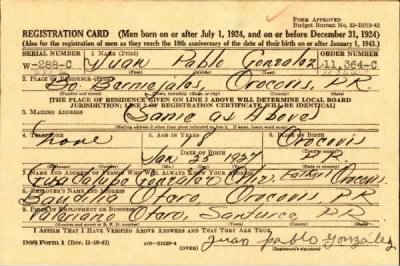 FORM APPROVED
Budget Bureau No. 33-R012-42
REGISTRATION CARD (Men born on or after July 1, 1924, and on or before December 31, 1924)
(Also for the registration of men as they reach the 18th anniversary of the date of their birth on or after January 1, 1943.)
SERIAL NUMBER 1. NAME (Print) ORDER NUMBER
W-288-C Juan Pablo Gonzalez 11,364-C
(First) (Middle) (Last)
2. PLACE OF RESIDENCE (Print)
Bo. Bermejales Orocovis, P.R.
(Number and street) (Town, township, village, or city) (County) (State)
[THE PLACE OF RESIDENCE GIVEN ON LINE 2 ABOVE WILL DETERMINE LOCAL BOARD
JURISDICTION; LINE 2 OF REGISTRATION CERTIFICATE WILL BE IDENTICAL]
3. MAILING ADDRESS
(Same as Above)
4. TELEPHONE 5. AGE IN YEARS 6. PLACE OF BIRTH
none 18 Orocovis
DATE OF BIRTH
Jan 25 P.R.
7. NAME AND ADDRESS OF PERSON WHO WILL ALWAYS KNOW YOUR ADDRESS
Gonzalez Father Orocovis
8. EMPLOYER'S NAME AND ADDRESS
Otero, Orocovis, P.R.
9. PLACE OF EMPLOYMENT OR BUSINESS
Otero, Santurce, P.R.
I AFFIRM THAT I HAVE VERIFIED ABOVE ANSWERS AND THAT THEY ARE TRUE.
DSS Form 1 (Rev. 11-16-42) juan pablo gonzález